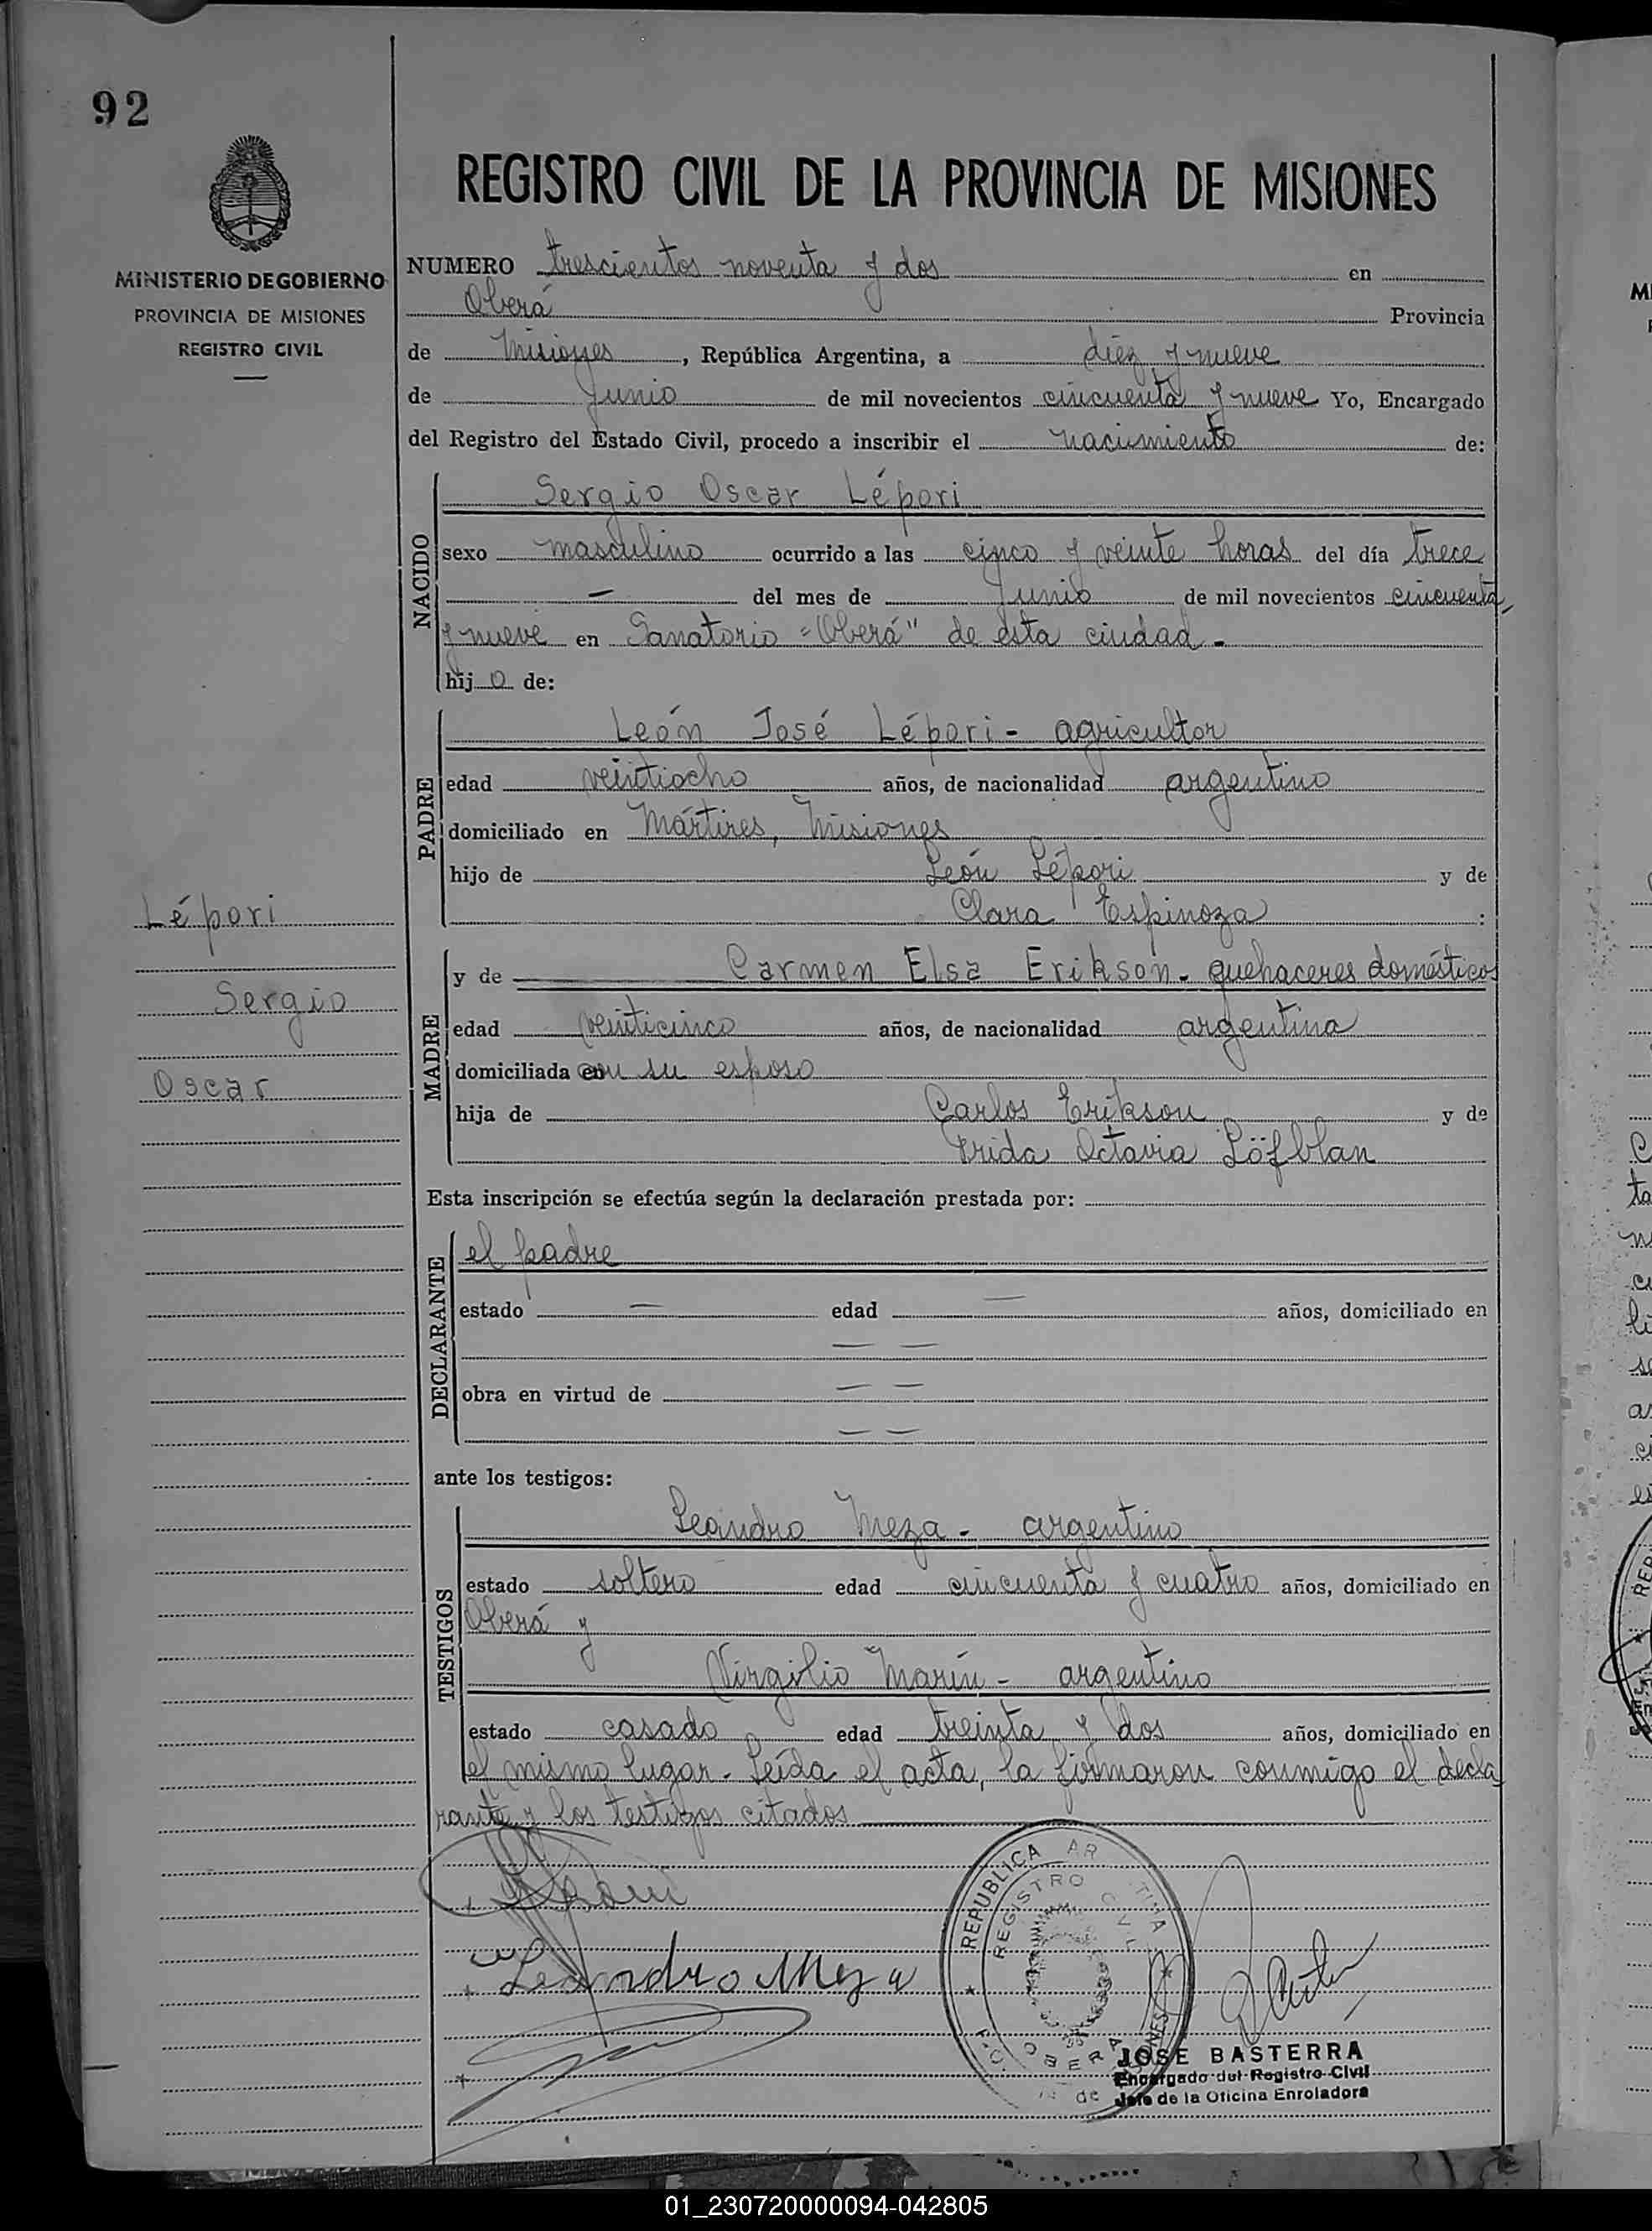 92
MINISTERIO DE GOBIERNO
PROVINCIA DE MISIONES
REGISTRO CIVIL
REGISTRO CIVIL DE LA PROVINCIA DE MISIONES
NUMERO trescientos noventa y dos en
Oberá Provincia
de Misiones, República Argentina, a diez y nueve
de Junio de mil novecientos cincuenta y nueve Yo, Encargado
del Registro del Estado Civil, procedo a inscribir el nacimiento de:
NACIDO
Sergio Oscar Lépori
sexo masculino ocurrido a las cinco y veinte horas del día trece
— del mes de Junio de mil novecientos cincuenta
y nueve en Sanatorio "Oberá" de esta ciudad -
hijo de:
PADRE
León José Lépori - agricultor
edad veintiocho años, de nacionalidad argentino
domiciliado en Mártires, Misiones
hijo de León Lépori y de
Clara Espinoza :
MADRE
y de Carmen Elsa Erikson - quehaceres domésticos
edad veinticinco años, de nacionalidad argentina
domiciliada con su esposo
hija de Carlos Erikson y de
Frida Octavia Löfblan
Lépori
Sergio
Oscar
Esta inscripción se efectúa según la declaración prestada por:
DECLARANTE
el padre
estado — edad — años, domiciliado en
— —
obra en virtud de — —
— —
ante los testigos:
TESTIGOS
Leandro Meza - argentino
estado soltero edad cincuenta y cuatro años, domiciliado en
Oberá y
Virgilio Marín - argentino
estado casado edad treinta y dos años, domiciliado en
el mismo lugar - Leída el acta, la firmaron conmigo el decla
rante y los testigos citados
Leandro Meza
REPUBLICA AR TINA
REGISTRO CIVIL
OBERA
JOSE BASTERRA
Encargado del Registro Civil
Jefe de la Oficina Enroladora
01_230720000094-042805